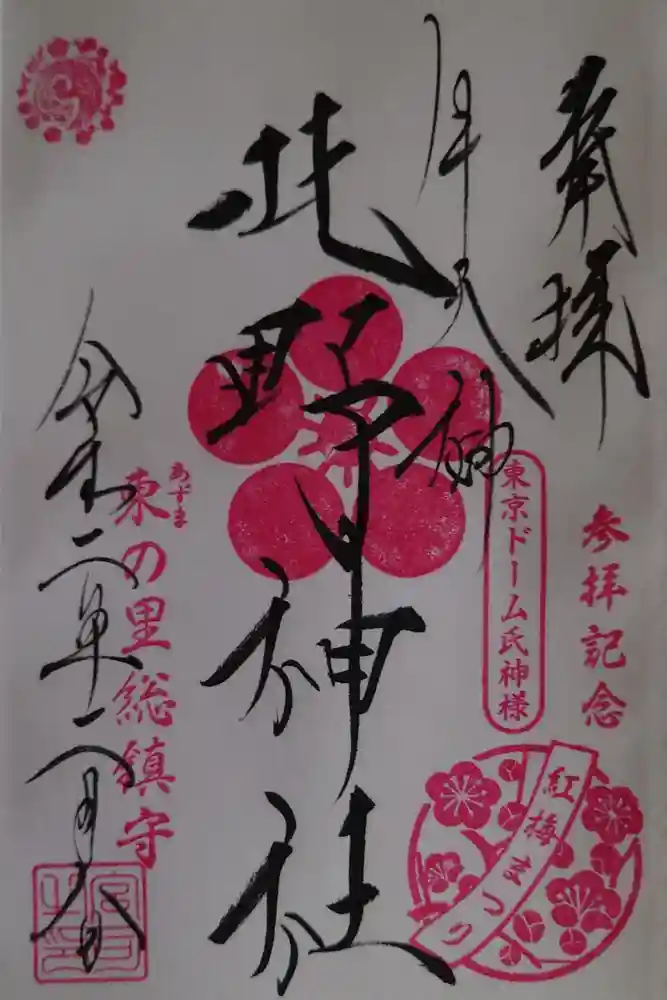 奉拝
参拝記念
牛天神
東京ドーム氏神様
紅梅まつり
北野神社
あずま
東の里総鎮守
令和二年二月八日
宮司之印